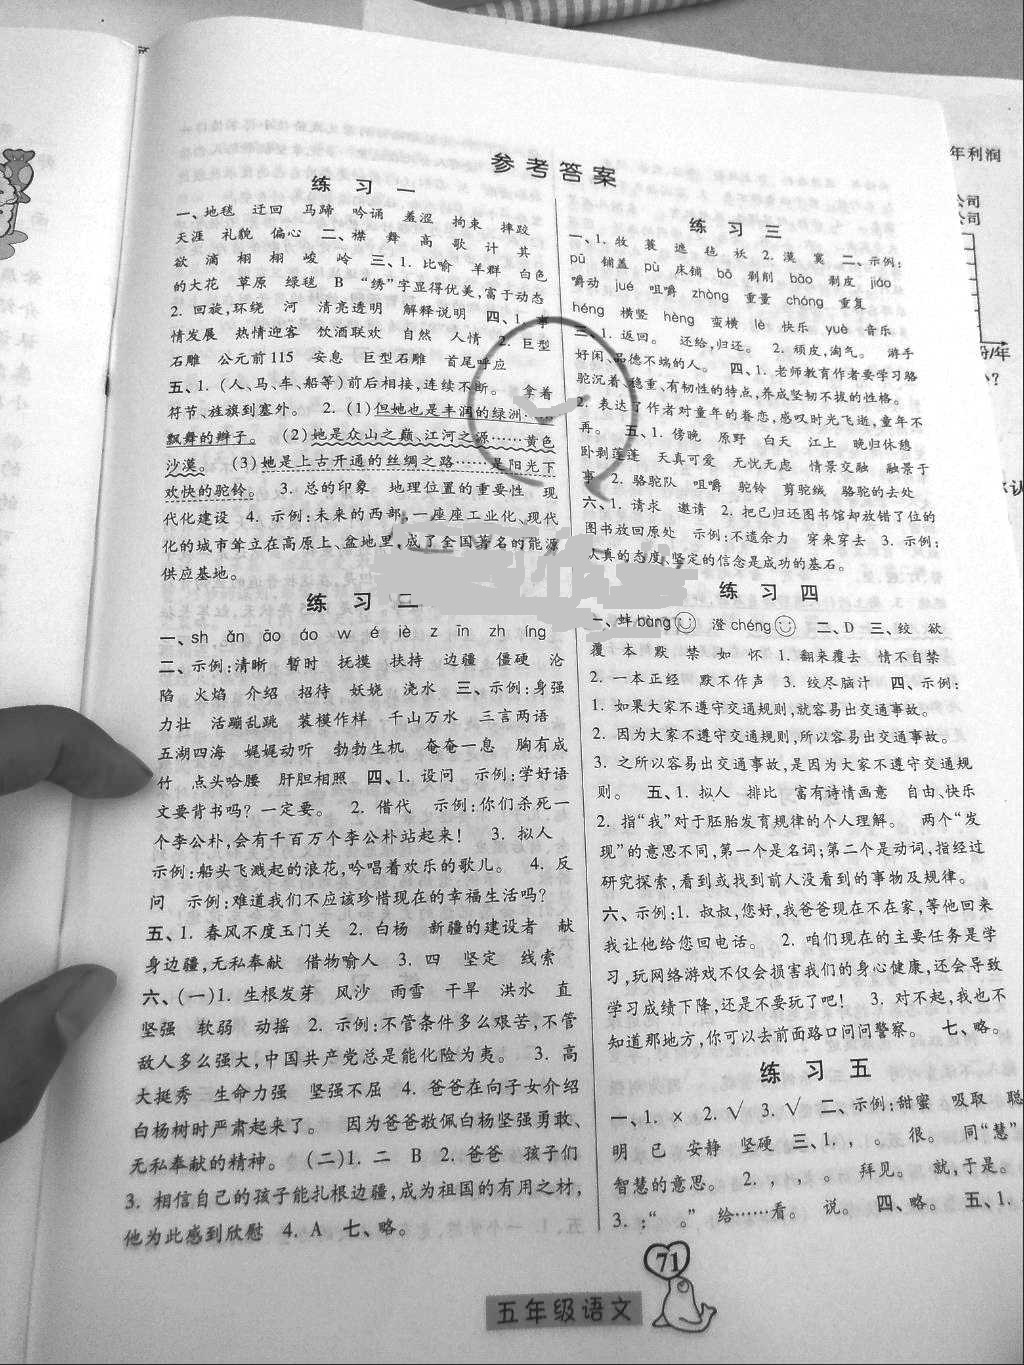 参考答案
练 习 一
一、地毯 迂回 马蹄 吟诵 羞涩 拘束 摔跤
天涯 礼貌 偏心 二、襟 舞 高 歌 计 其
欲 滴 栩 栩 峻 岭 三、1. 比喻 羊群 白色
的大花 草原 绿毯 B “绣”字显得优美,富于动态
2. 回旋,环绕 河 清亮透明 解释说明 四、1. 事
情发展 热情迎客 饮酒联欢 自然 人情 2. 巨型
石雕 公元前115 安息 巨型石雕 首尾呼应
五、1. (人、马、车、船等)前后相接,连续不断。 拿着
符节、旌旗到塞外。 2. (1)但她也是丰润的绿洲……
飘舞的辫子。 (2)她是众山之巅、江河之源……黄色
沙漠。 (3)她是上古开通的丝绸之路……是阳光下
欢快的驼铃。 3. 总的印象 地理位置的重要性 现
代化建设 4. 示例:未来的西部,一座座工业化、现代
化的城市耸立在高原上、盆地里,成了全国著名的能源
供应基地。
练 习 二
一、sh ǎn āo áo w é iè z īn zh íng
二、示例:清晰 暂时 抚摸 扶持 边疆 僵硬 沦
陷 火焰 介绍 招待 妖娆 浇水 三、示例:身强
力壮 活蹦乱跳 装模作样 千山万水 三言两语
五湖四海 娓娓动听 勃勃生机 奄奄一息 胸有成
竹 点头哈腰 肝胆相照 四、1. 设问 示例:学好语
文要背书吗? 一定要。 2. 借代 示例:你们杀死一
个李公朴,会有千百万个李公朴站起来! 3. 拟人
示例:船头飞溅起的浪花,吟唱着欢乐的歌儿。 4. 反
问 示例:难道我们不应该珍惜现在的幸福生活吗?
五、1. 春风不度玉门关 2. 白杨 新疆的建设者 献
身边疆,无私奉献 借物喻人 3. 四 坚定 线索
六、(一)1. 生根发芽 风沙 雨雪 干旱 洪水 直
坚强 软弱 动摇 2. 示例:不管条件多么艰苦,不管
敌人多么强大,中国共产党总是能化险为夷。 3. 高
大挺秀 生命力强 坚强不屈 4. 爸爸在向子女介绍
白杨树时严肃起来了。 因为爸爸敬佩白杨坚强勇敢、
无私奉献的精神。 (二)1. 二 B 2. 爸爸 孩子们
3. 相信自己的孩子能扎根边疆,成为祖国的有用之材,
他为此感到欣慰 4. A 七、略。
练 习 三
一、1. 牧 蓑 遮 毡 袄 2. 漠 寞 二、示例:
pū 铺盖 pù 床铺 bō 剥削 bāo 剥皮 jiáo
嚼动 jué 咀嚼 zhòng 重量 chóng 重复
héng 横竖 hèng 蛮横 lè 快乐 yuè 音乐
三、1. 返回。 还给,归还。 2. 顽皮,淘气。 游手
好闲、品德不端的人。 四、1. 老师教育作者要学习骆
驼沉着、稳重、有韧性的特点,养成坚韧不拔的性格。
2. 表达了作者对童年的眷恋,感叹时光飞逝,童年不
再。 五、1. 傍晚 原野 白天 江上 晚归休憩
卧剥莲蓬 天真可爱 无忧无虑 情景交融 融景于
事 2. 骆驼队 咀嚼 驼铃 剪驼绒 骆驼的去处
六、1. 请求 邀请 2. 把已归还图书馆却放错了位的
图书放回原处 示例:不遗余力 穿来穿去 3. 示例:
认真的态度、坚定的信念是成功的基石。
练 习 四
一、蚌bàng 澄chéng 二、D 三、绞 欲
覆 本 默 禁 如 怀 1. 翻来覆去 情不自禁
2. 一本正经 默不作声 3. 绞尽脑汁 四、示例:
1. 如果大家不遵守交通规则,就容易出交通事故。
2. 因为大家不遵守交通规则,所以容易出交通事故。
3. 之所以容易出交通事故,是因为大家不遵守交通规
则。 五、1. 拟人 排比 富有诗情画意 自由、快乐
2. 指“我”对于胚胎发育规律的个人理解。 两个“发
现”的意思不同,第一个是名词;第二个是动词,指经过
研究探索,看到或找到前人没看到的事物及规律。
六、示例:1. 叔叔,您好,我爸爸现在不在家,等他回来
我让他给您回电话。 2. 咱们现在的主要任务是学
习,玩网络游戏不仅会损害我们的身心健康,还会导致
学习成绩下降,还是不要玩了吧! 3. 对不起,我也不
知道那地方,你可以去前面路口问问警察。 七、略。
练 习 五
一、1. × 2. √ 3. √ 二、示例:甜蜜 吸取 聪
明 已 安静 坚硬 三、1. , 。 很。 同“慧”
智慧的意思。 2. , , 。 拜见。 就,于是。
3. :“ 。” 给……看。 说。 四、略。 五、1.
71
五年级语文
年利润
公司
公司
份/年